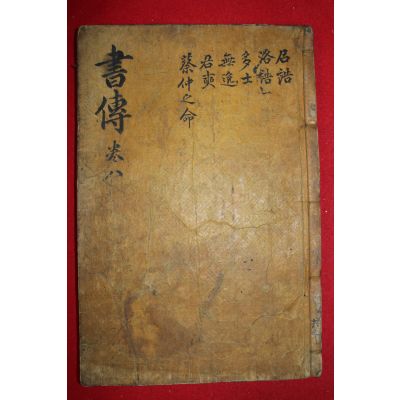 召誥
洛誥
多士
無逸
君奭
蔡仲之命
書傳 卷八